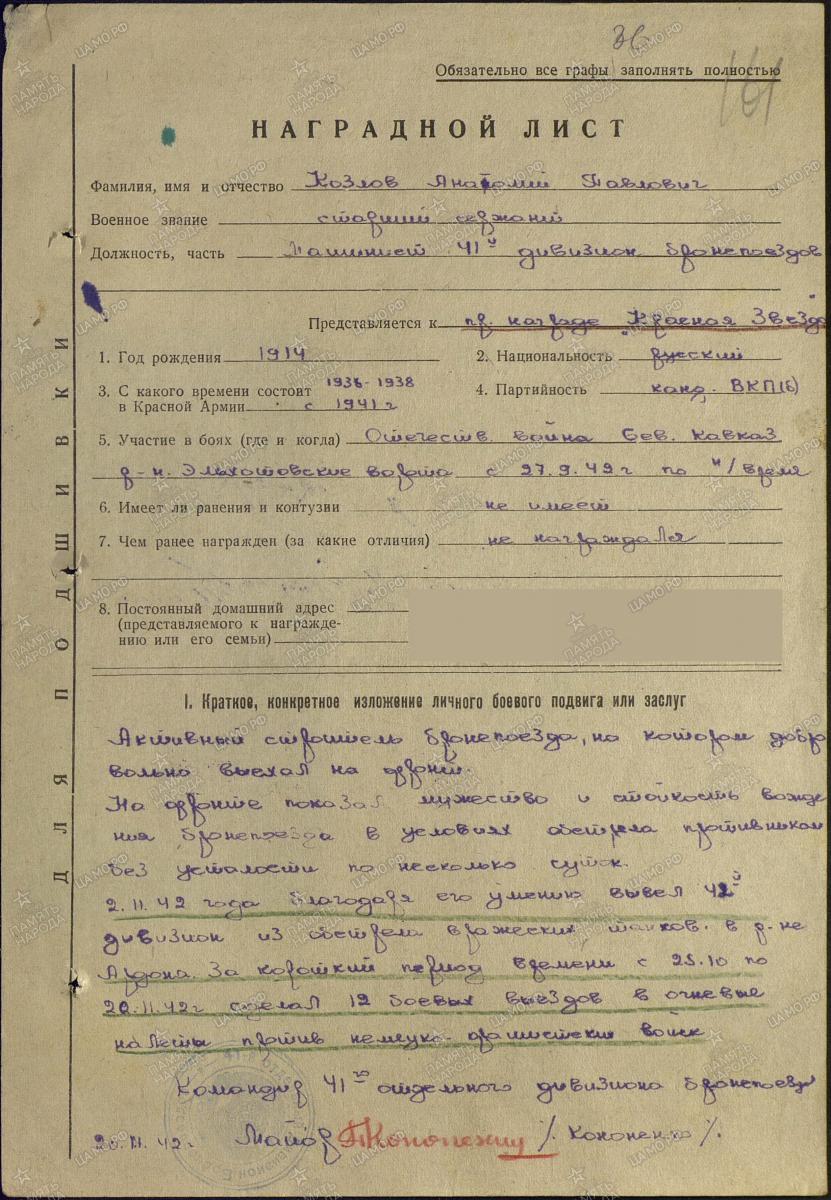 36
Обязательно все графы заполнять полностью
161
НАГРАДНОЙ ЛИСТ
Фамилия, имя и отчество Козлов Анатолий Павлович
Военное звание старший сержант
Должность, часть Машинист 41й дивизион бронепоездов
Представляется к пр. награде "Красная Звезда
1. Год рождения 1914
2. Национальность русский
3. С какого времени состоит 1936-1938
в Красной Армии с 1941 г
4. Партийность канд. ВКП(б)
5. Участие в боях (где и когда) Отечеств. война Сев. Кавказ
р-н. Эльхотовские ворота с 27.9.42 г по н/время
6. Имеет ли ранения и контузии не имеет
7. Чем ранее награжден (за какие отличия) не награждался
8. Постоянный домашний адрес
(представляемого к награжде-
нию или его семьи)
ДЛЯ ПОДШИВКИ
I. Краткое, конкретное изложение личного боевого подвига или заслуг
Активный строитель бронепоезда, на котором добро
вольно выехал на фронт.
На фронте показал мужество и стойкость вожде
ния бронепоезда в условиях обстрела противником
без усталости по несколько суток.
2.11.42 года благодаря его умению вывел 42й
дивизион из обстрела вражеских танков. в р-не
Ардона. За короткий период времени с 25.10 по
20.11.42 г сделал 12 боевых выездов в огневые
налеты против немецко-фашистских войск
Командир 41го отдельного дивизиона бронепоезд
20.11.42 г. Майор Кононенко /. Кононенко /.
ПАМЯТЬ НАРОДА
ЦАМО.РФ